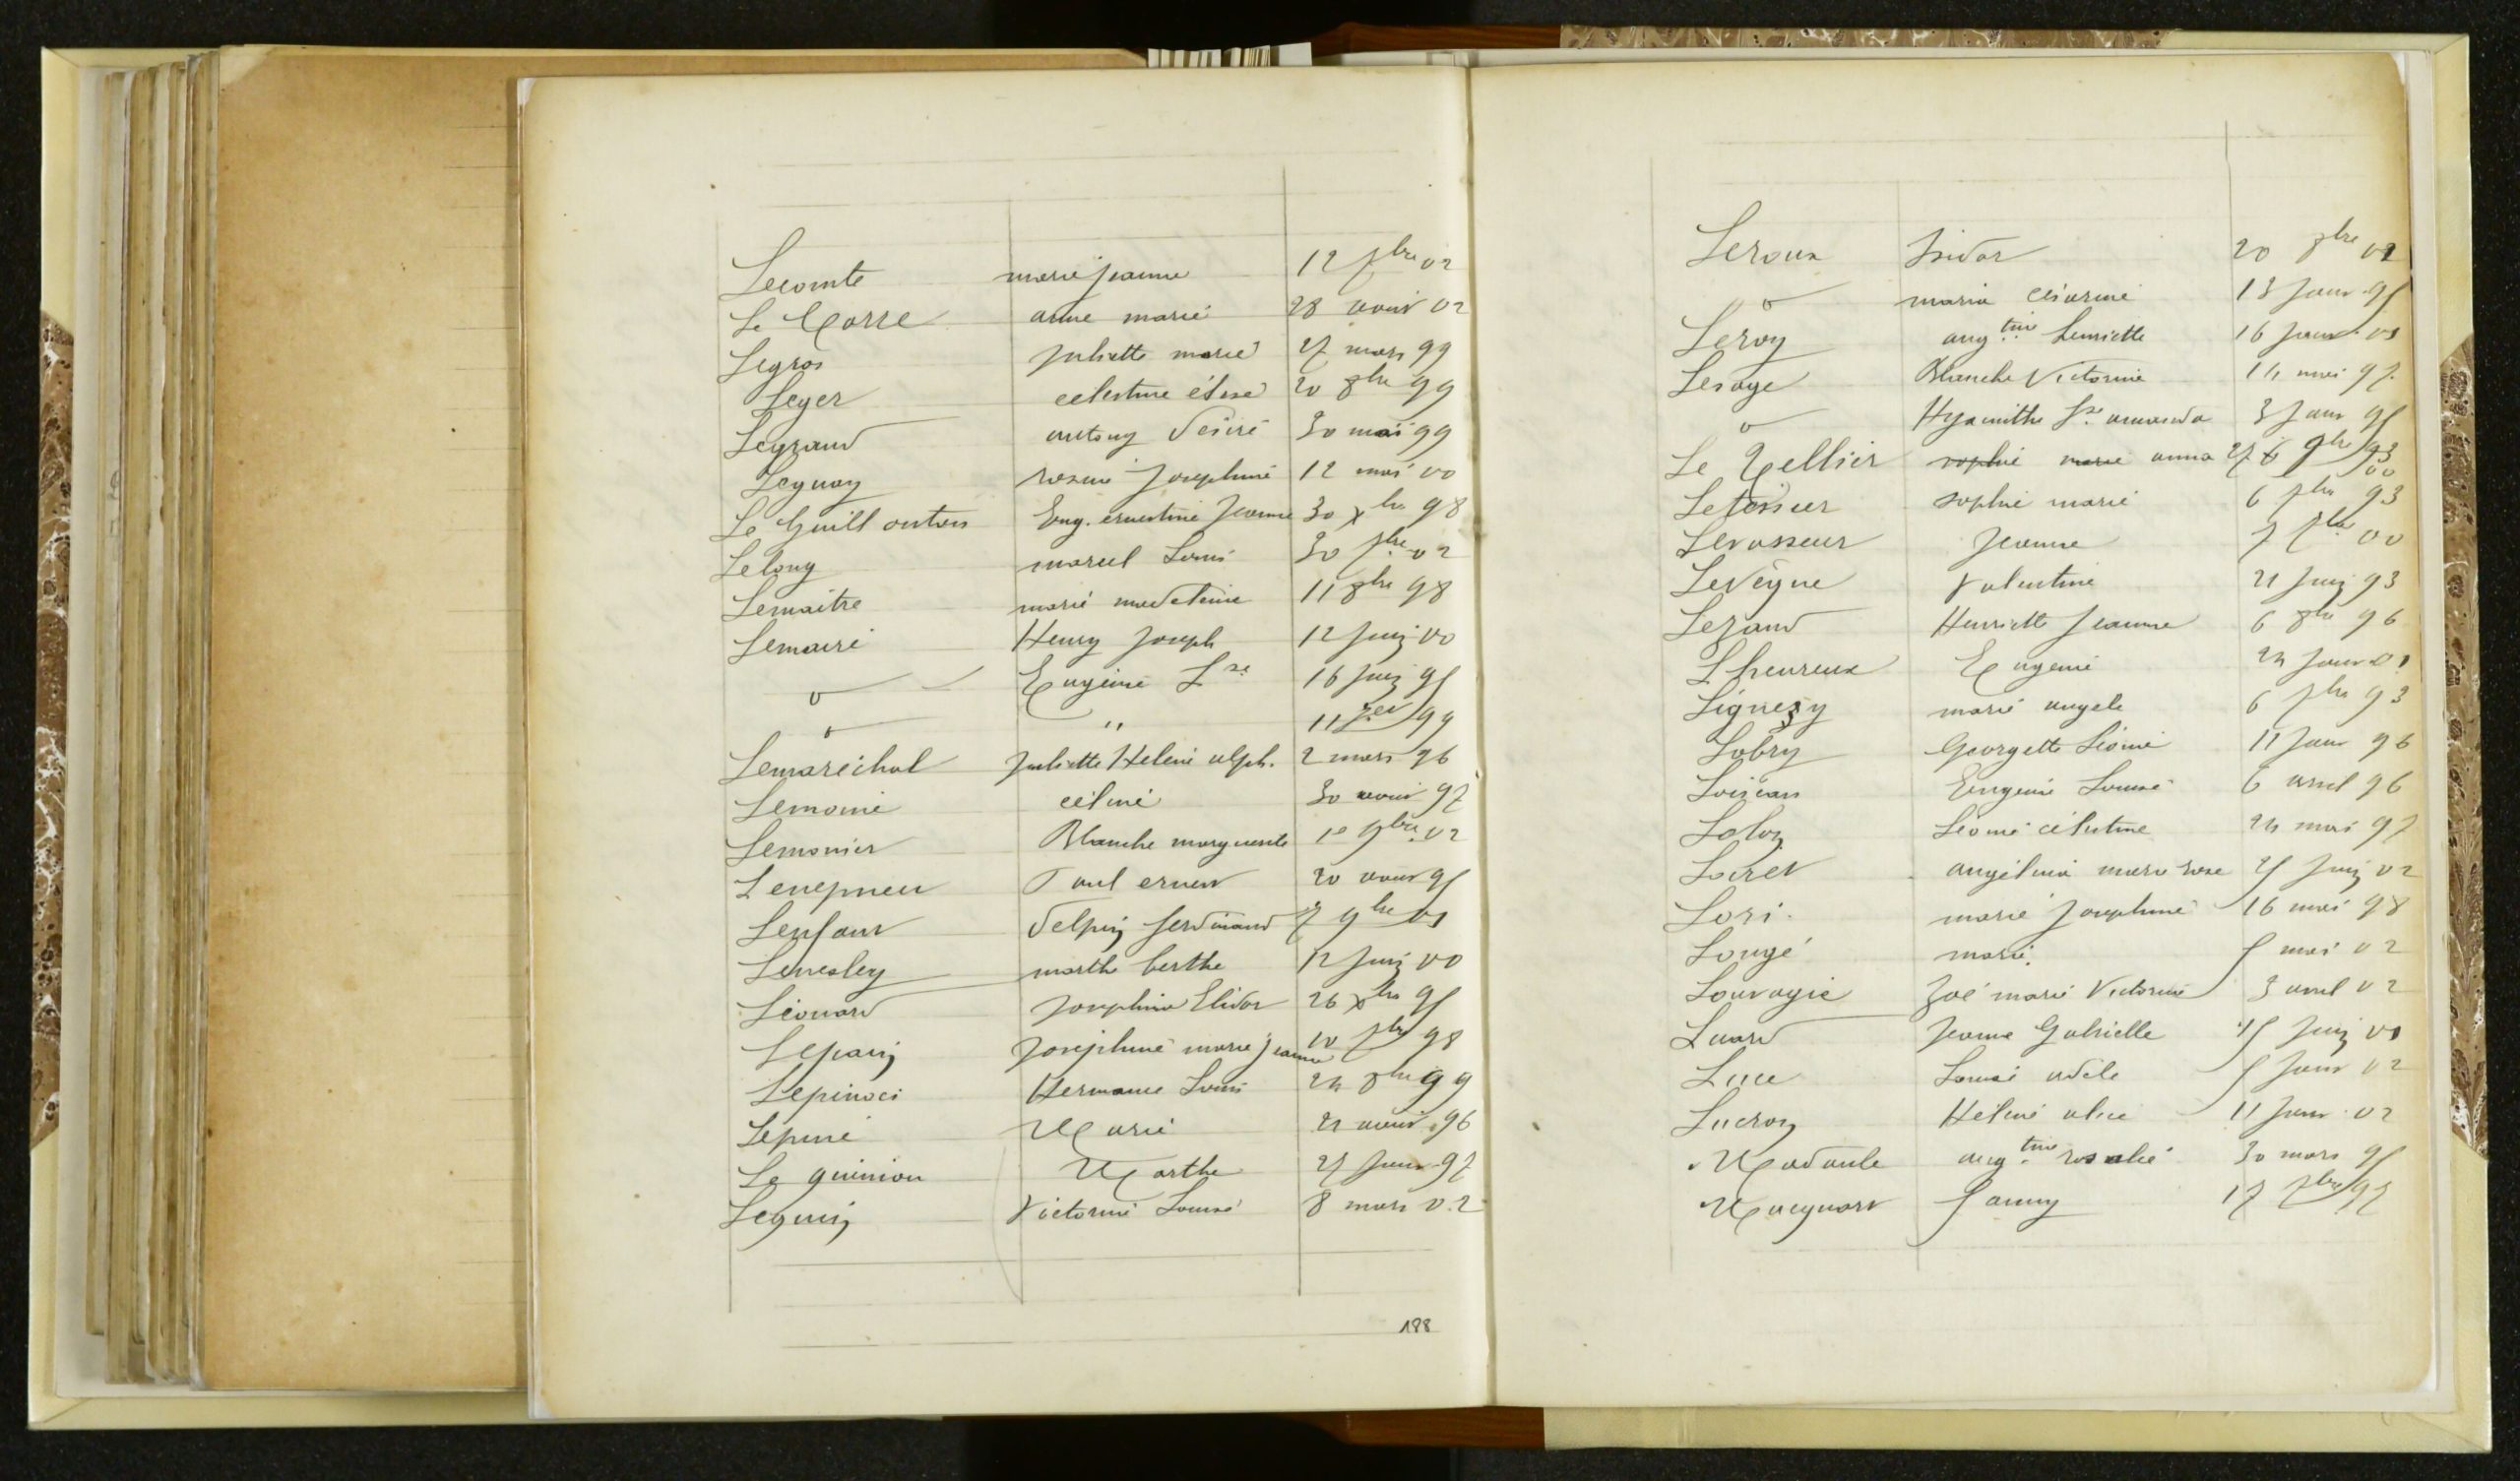 Lecomte marie jeanne 12 7bre 02
Le Corre anne marie 28 aout 02
Legros Juliette marie 27 mars 99
Leger celestine élise 20 8bre 99
Legrand antony Désiré 30 mai 99
Leguay rosine Josephine 12 mai 00
Le Guill ontons Eug. ernestine Jeanne 30 xbre 98
Lelong marcel Louis 30 7bre 02
Lemaitre marie madeleine 11 8bre 98
Lemaire Henry Joseph 12 Juin 00
" Eugénie Lse 16 Juin 95
" " 11 99
Lemaréchal Juliette Helene alph. 2 mars 96
Lemoine céline 30 aout 97
Lemonier Blanche marguerite 10 7bre 02
Lenepneu Paul ernest 20 aout 95
Lenfant Delphin ferdinand 7 9bre 01
Lenesley marthe berthe 12 Juin 00
Léonard Josephine Elidor 26 xbre 95
Lepain Joséphine marie Jeanne 10 7bre 98
Lepinoci Hermance Louis 24 8bre 99
Lepine Marie 21 aout 96
Le guiniou Marthe 27 Janv 97
Lequin Victorine Louise 8 mars 02
188
Leroux Isidor 20 8bre 02
" maria césarine 13 Janv 95
Leroy augtine henriette 16 Janv. 01
Lesage Blanche Victorine 14 mai 97
" Hyacinthe Lse amanda 3 Janv 95
Le Tellier sophie marie anna 27 6 9bre 93 00
Letessier sophie marie 6 7bre 93
Levasseur Jeanne 7 7bre 00
Levêque Valentine 21 Juin 93
Lezand Henriette Jeanne 6 8bre 96
Lheureux Eugenie 24 Janv 01
Lignezy marie angele 6 7bre 93
Lobry Georgette Léonie 11 Janv 96
Loizeau Eugenie Louise 6 avril 96
Loloz Léonie célestine 24 mai 97
Loret angélina marie rose 25 Juin 02
Lori. marie Josephine 16 mai 98
Lougé marie. 5 mai 02
Louvagie Zoé marie Victorine 3 avril 02
Luard Jeanne Gabrielle 15 Juin 01
Luce Louise adèle 5 Janv 02
Lucron Hélène alice 11 Janv. 02
Madaule augtine rosalie 30 mars 95
Macquart Fanny 17 7bre 97